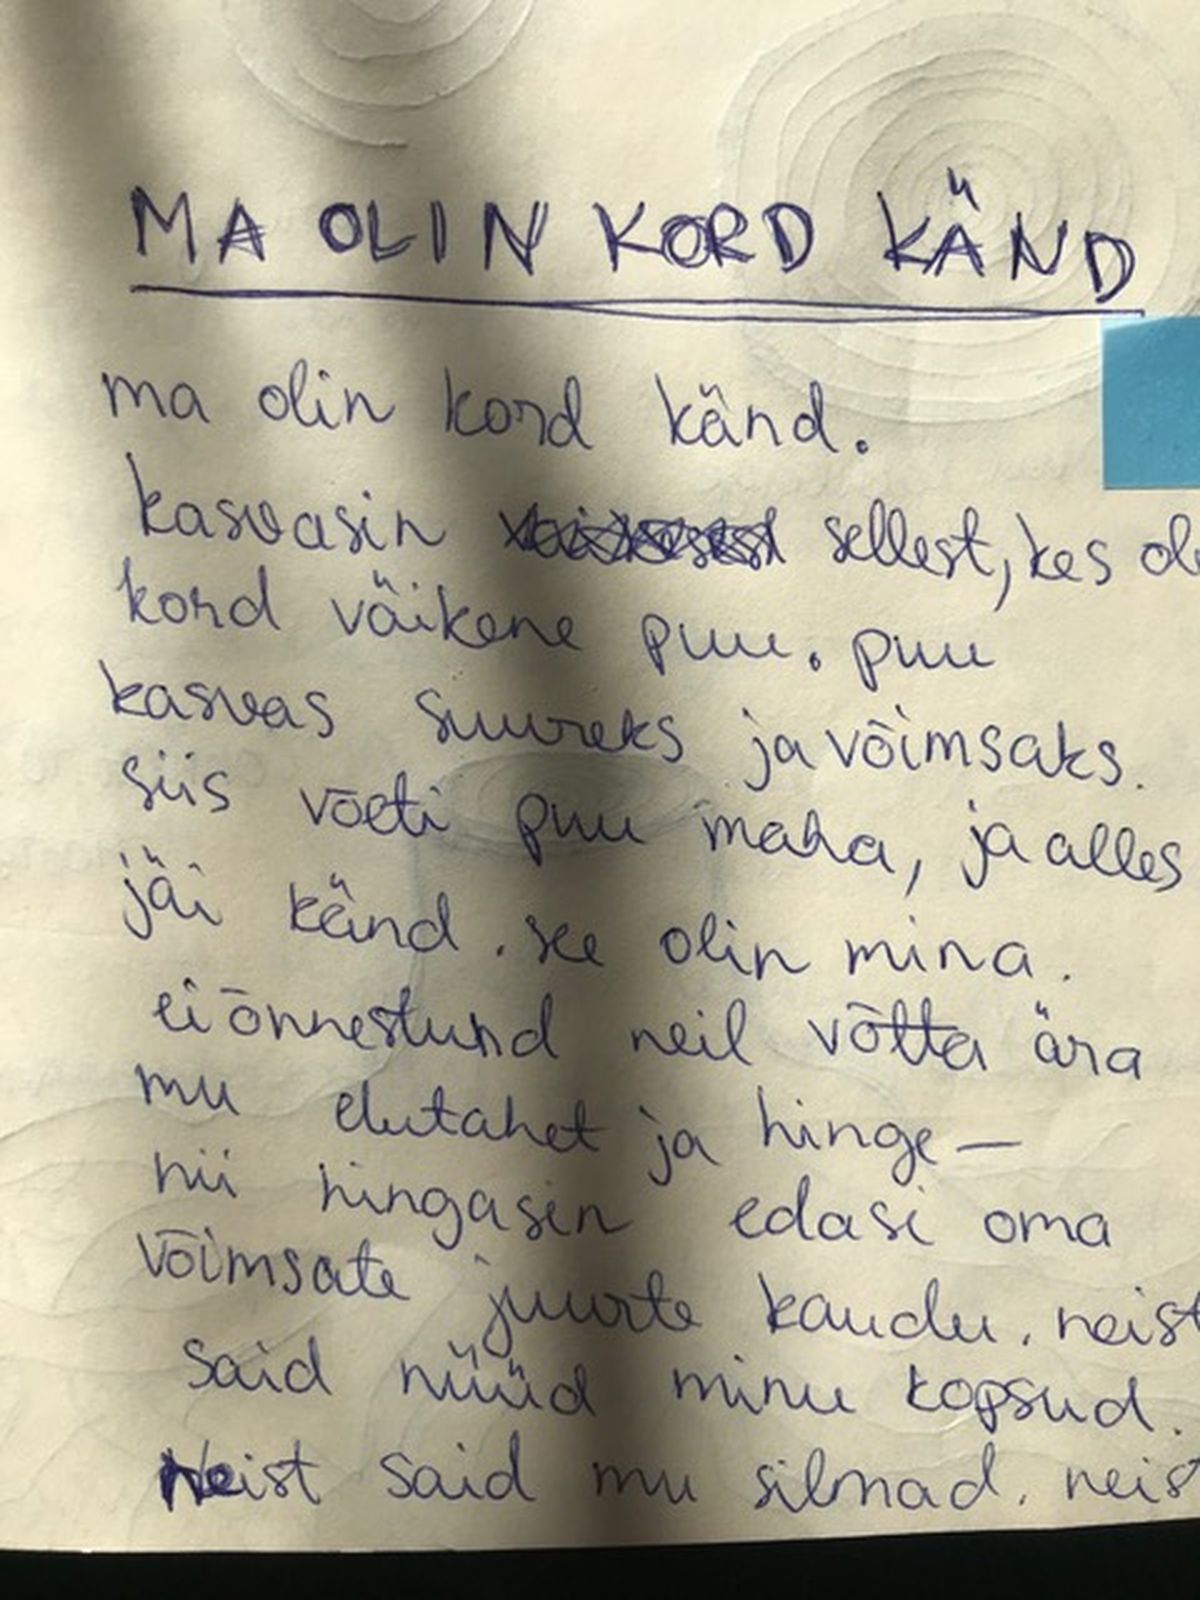 MA OLIN KORD KÄND
ma olin kord känd.
kasvasin sellest, kes oli
kord väikene puu. puu
kasvas suureks ja võimsaks.
siis võeti puu maha, ja alles
jäi känd. see olin mina.
ei õnnestund neil võtta ära
mu elutahet ja hinge —
nii hingasin edasi oma
võimsate juurte kaudu. neist
said nüüd minu kopsud.
Neist said mu silmad. neist